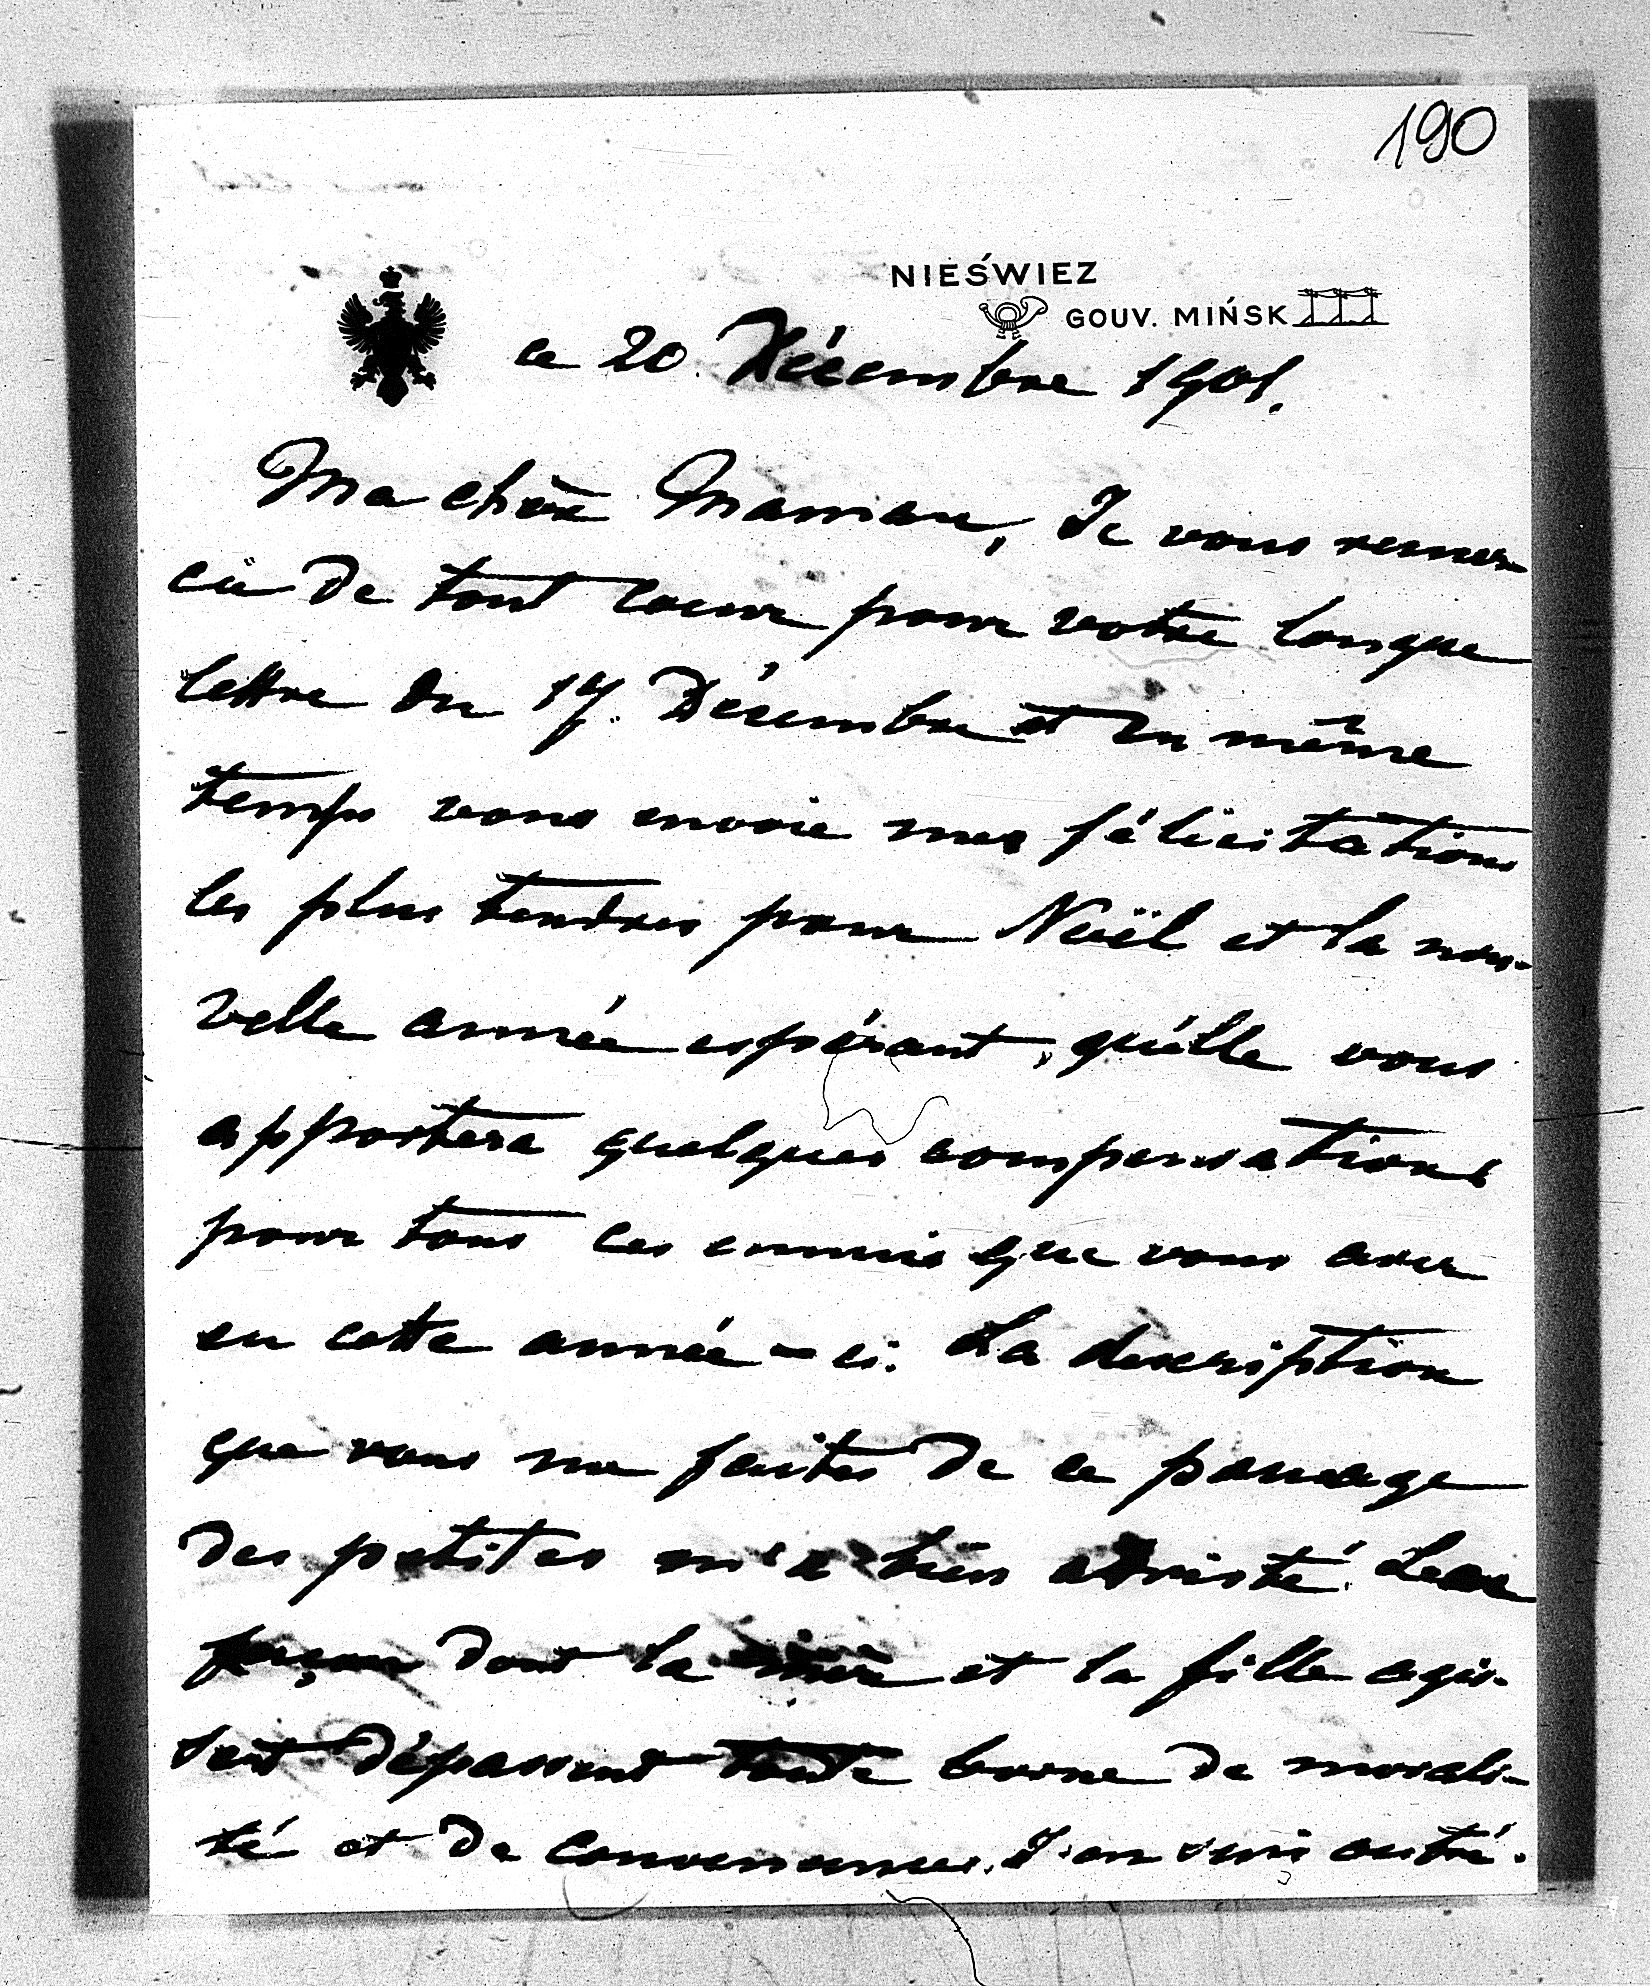 190
NIEŚWIEZ
GOUV. MIŃSK
ce 20. Décembre 1901.
Ma chère Maman, Je vous remer-
cie de tout coeur pour votre longue
lettre du 17. Décembre et en même
temps vous envoie mes félicitations
les plus tendres pour Noël et la nou-
velle année espérant, qu'elle vous
apportera quelques compensations
pour tous les ennuis que vous avez
eu cette année-ci. La description
que vous me faites de ce
des petites m'a bien attristé. La
façon dont la mère et la fille agis-
sent dépassent toute borne de morali-
té et de convenances. J'en suis outré.